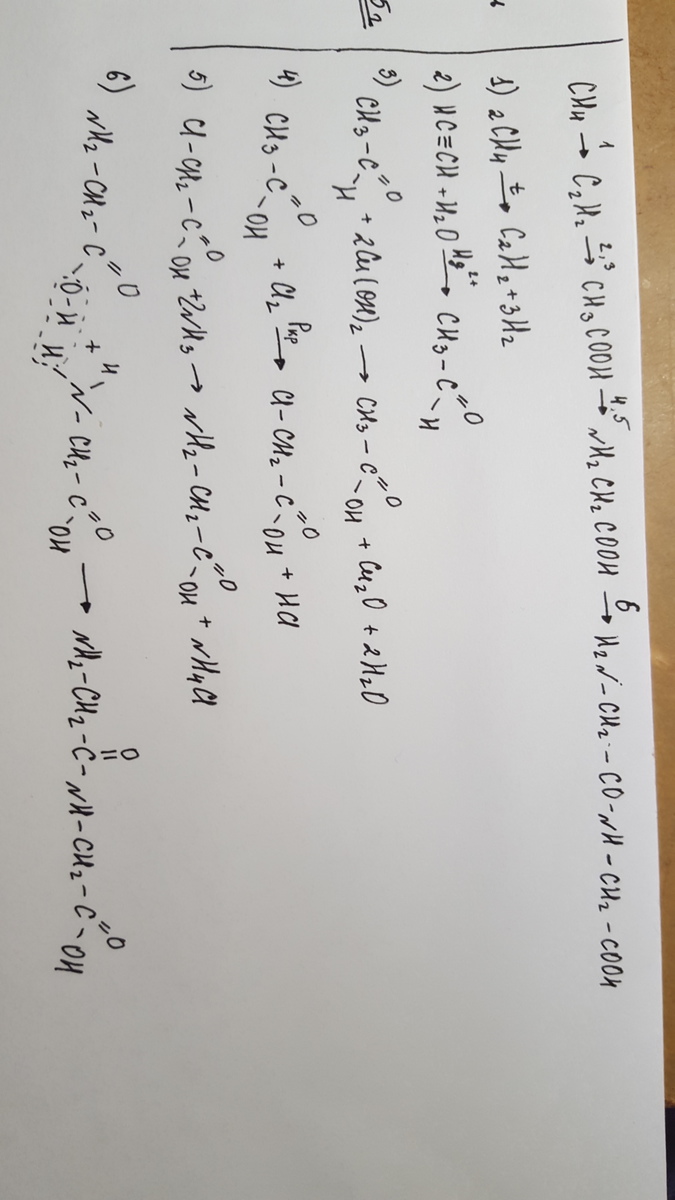 CH4 →1 C2H2 →2,3 CH3COOH →4,5 NH2CH2COOH →6 H2N-CH2-CO-NH-CH2-COOH
1) 2CH4 →t C2H2 + 3H2
2) HC≡CH + H2O →Hg2+ CH3-C=O-H
3) CH3-C=O-H + 2Cu(OH)2 → CH3-C=O-OH + Cu2O + 2H2O
4) CH3-C=O-OH + Cl2 →Pкр Cl-CH2-C=O-OH + HCl
5) Cl-CH2-C=O-OH + 2NH3 → NH2-CH2-C=O-OH + NH4Cl
6) NH2-CH2-C=O-O-H + H-H-N-CH2-C=O-OH → NH2-CH2-C=O-NH-CH2-C=O-OH